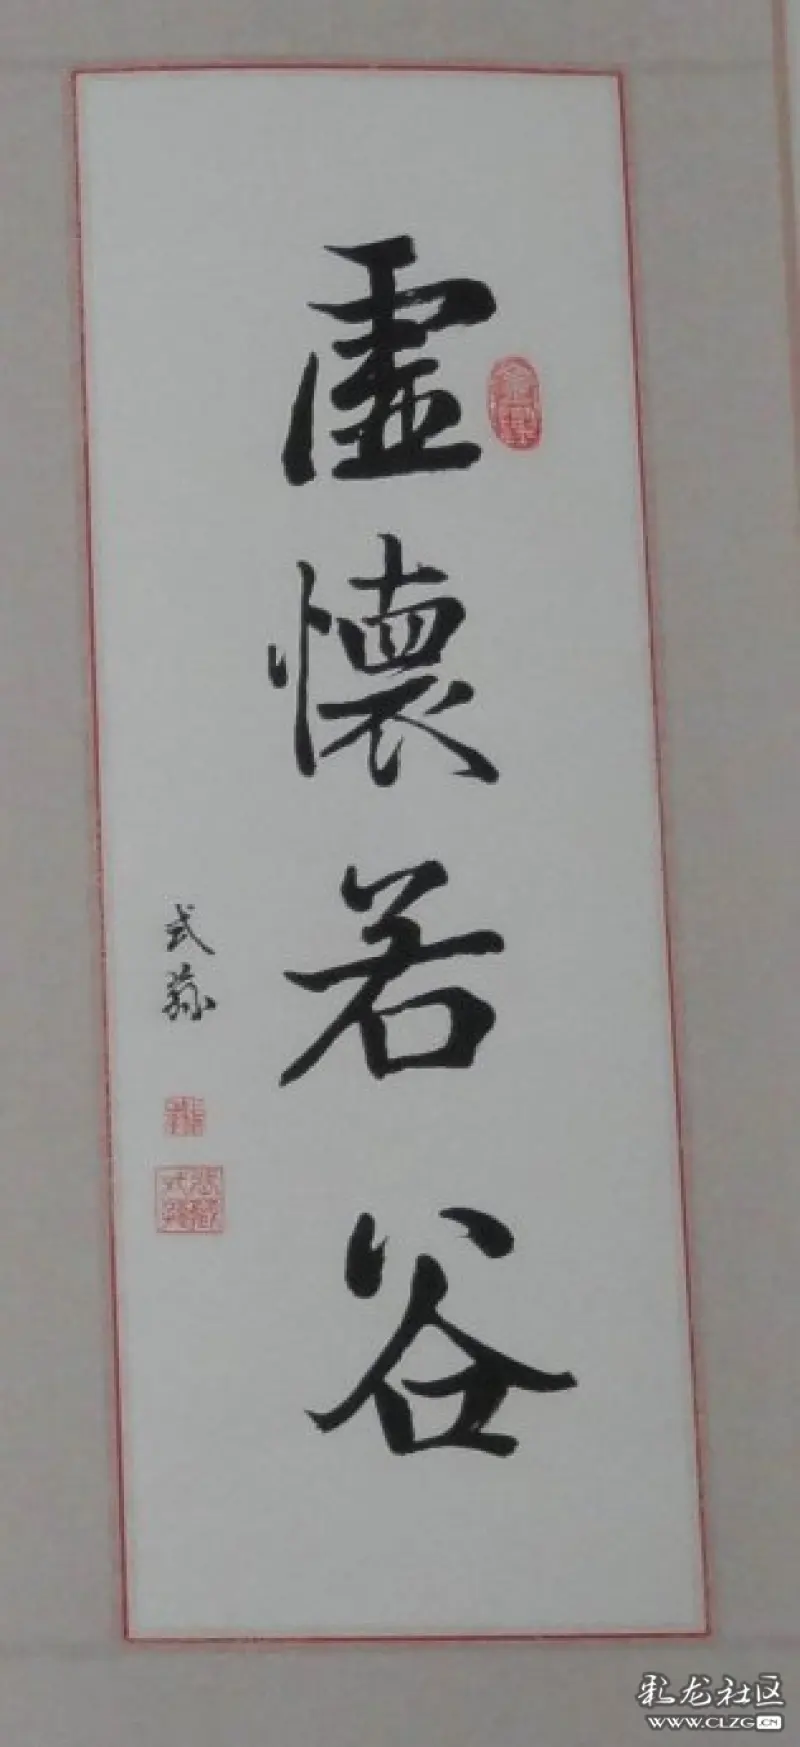 虚懷若谷
式蓀
彩龙社区
www.CLZG.CN